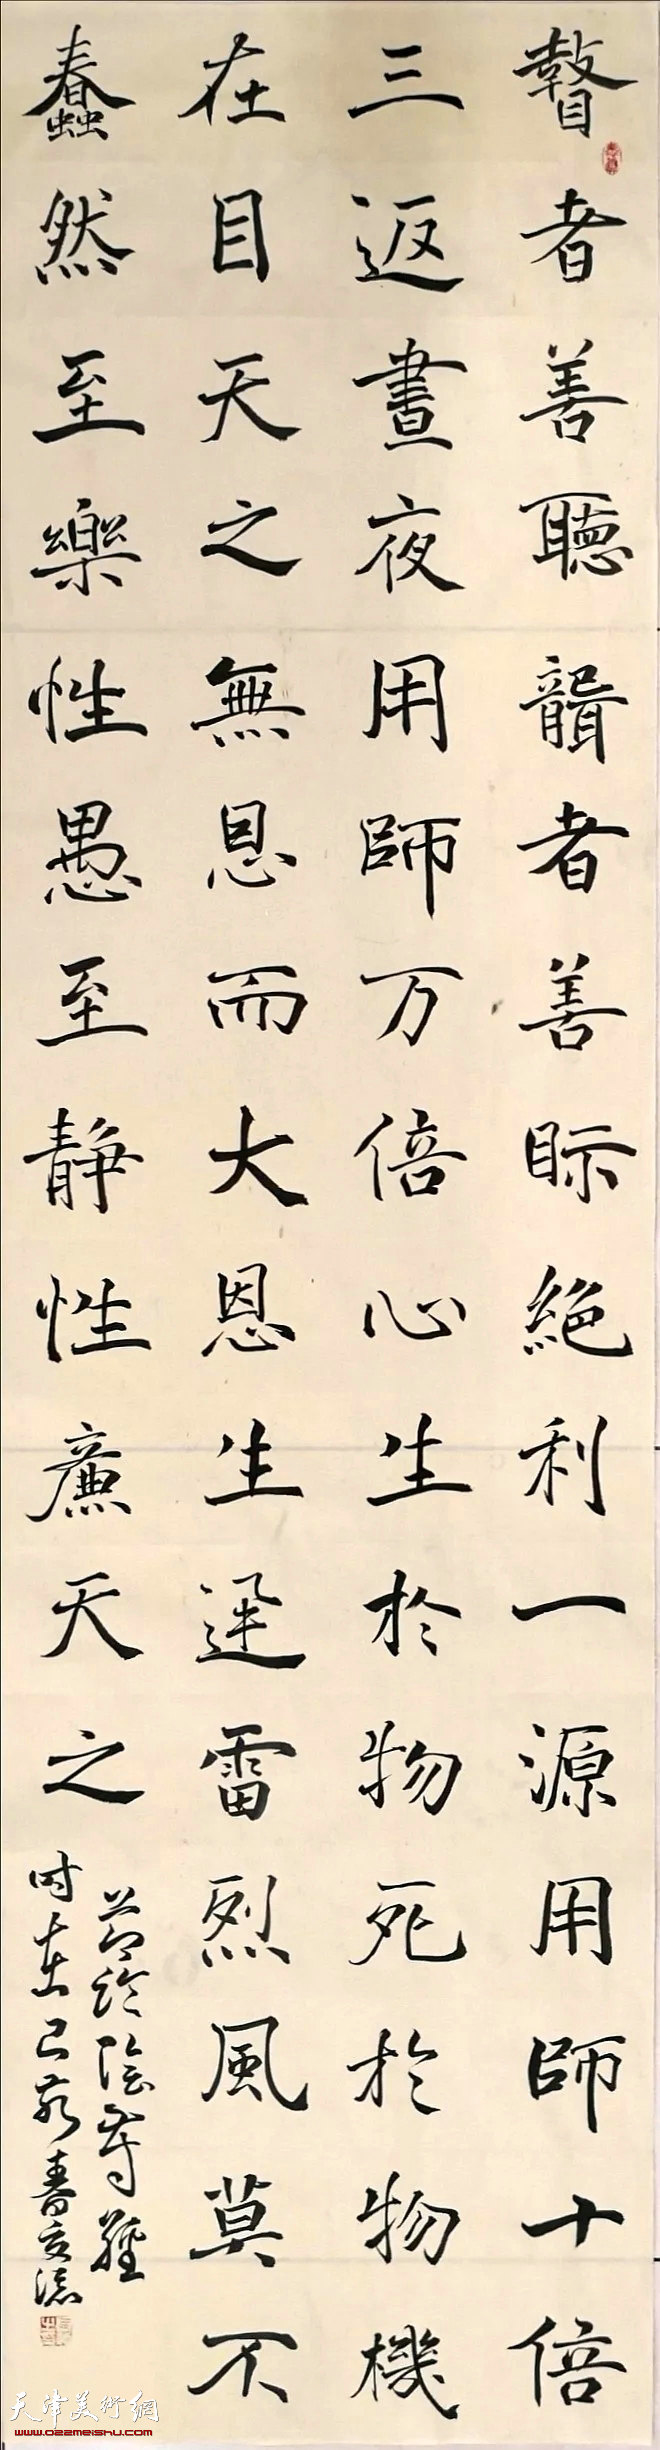 瞽者善聽聾者善眎絕利一源用師十倍
三返晝夜用師万倍心生於物死於物機
在目天之無恩而大恩生迅雷烈風莫不
蠢然至樂性愚至靜性廉天之
節臨陰符經
時在己亥春
天津美術網
www.022meishu.com